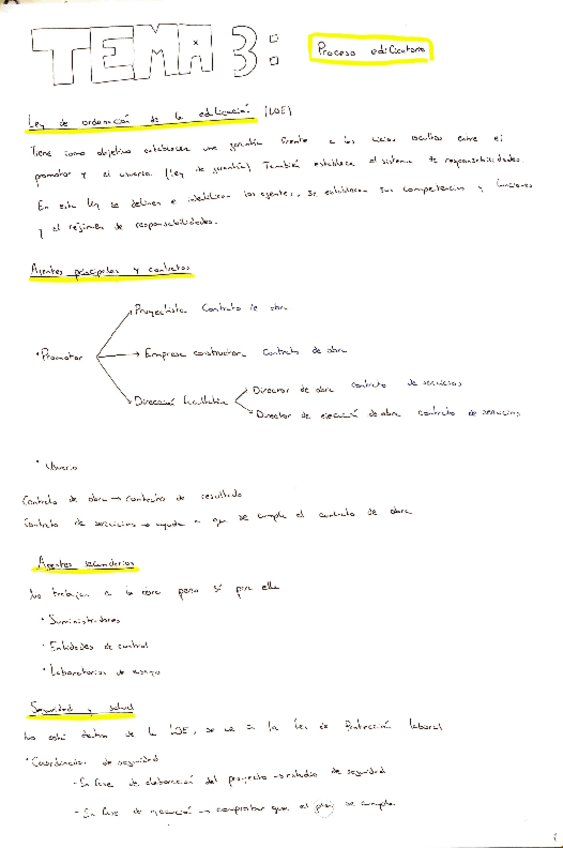 TEMA 3: Proceso edificatorio
Ley de ordenación de la edificación (LOE)
Tiene como objetivo establecer una garantía frente a los vicios ocultos entre el
promotor y el usuario (Ley de garantía) También establece el sistema de responsabilidades.
En esta ley se definen e identifican los agentes, se establecen sus competencias y funciones
y el régimen de responsabilidades.
Agentes principales y contratos
Proyectista Contrato de obra
• Promotor → Empresa constructora Contrato de obra
Dirección facultativa
Director de obra contrato de servicios
Director de ejecución de obra contrato de servicios
• Usuario
Contrato de obra → contrato de resultado
Contrato de servicios → ayuda a que se cumpla el contrato de obra
Agentes secundarios
No trabajan en la obra pero sí para ella
• Suministradores
• Entidades de control
• Laboratorios de ensayo
Seguridad y salud
No está dentro de la LOE, se ve en la Ley de Protección laboral
• Coordinador de seguridad
- En fase de elaboración del proyecto → estudio de seguridad
- En fase de ejecución → comprobar que el plan se cumpla.